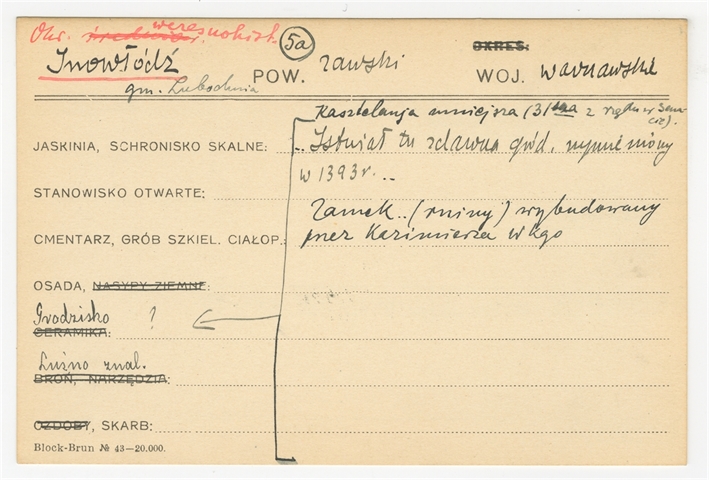 Okr. wczesnohist.
średniow.
5a
OKRES:
Inowłódz POW. rawski WOJ. warszawskie
gm. Lubochnia
Kasztelanja mniejsza (31sza z rzędu w Sen
cie).
JASKINIA, SCHRONISKO SKALNE: .. Istniał tu zdawna gród, wymieniony
w 1393 r. ..
STANOWISKO OTWARTE:
Zamek .. (ruiny) wybudowany
CMENTARZ, GRÓB SZKIEL. CIAŁOP.: przez Kazimierza W kgo
OSADA, NASYPY ZIEMNE:
Grodzisko ?
CERAMIKA:
Luźno znal.
BROŃ, NARZĘDZIA:
OZDOBY, SKARB:
Block-Brun № 43—20.000.